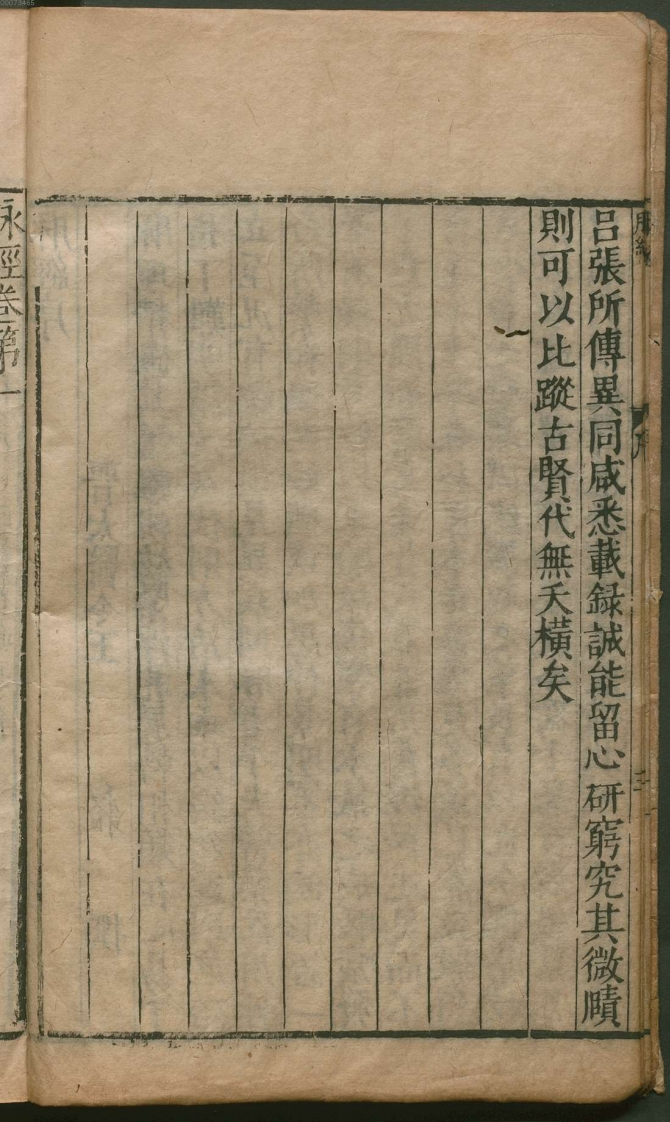 呂張所傳異同咸悉載録誠能留心研窮究其微賾
則可以比蹤古賢代無夭橫矣
脉經卷第一